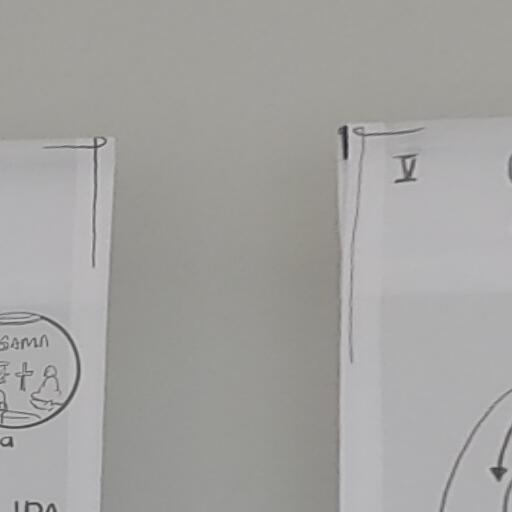 SAMA
a
IDA
V